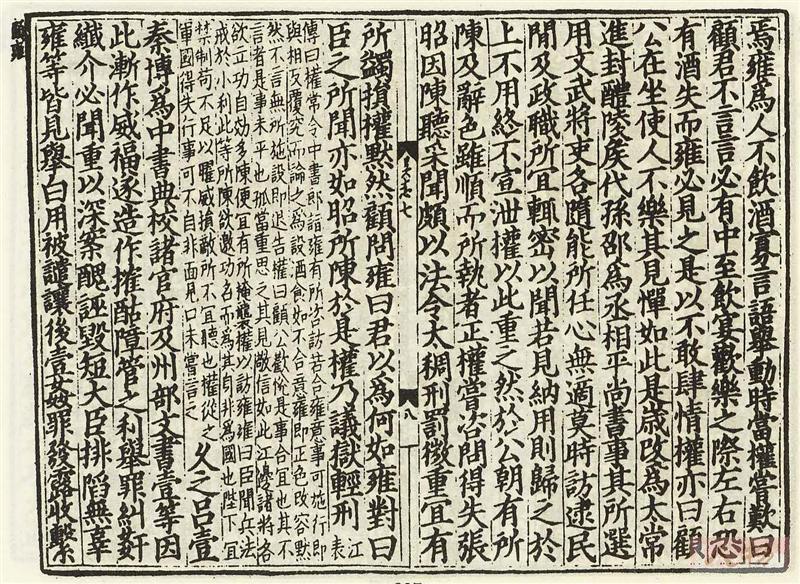 焉雍為人不飲酒寡言語舉動時當權嘗歎曰
顧君不言言必有中至飲宴歡樂之際左右恐
有酒失而雍必見之是以不敢肆情權亦曰顧
公在坐使人不樂其見憚如此是歲改為太常
進封醴陵侯代孫邵為丞相平尚書事其所選
用文武將吏各隨能所任心無適莫時訪逮民
閒及政職所宜輒密以聞若見納用則歸之於
上不用終不宣泄權以此重之然於公朝有所
陳及辭色雖順而所執者正權嘗咨問得失張
昭因陳聽采聞頗以法令太稠刑罰微重宜有
八
所蠲損權默然顧問雍曰君以為何如雍對曰
臣之所聞亦如昭所陳於是權乃議獄輕刑江表
傳曰權常令中書郎詣雍有所咨訪若合雍意事可施行即
與相反覆究而論之為設酒食如不合意雍即正色改容默
然不言無所施設即退告權曰顧公歡悅是事合宜也其不
言者是事未平也孤當重思之其見敬信如此江邊諸將各
欲立功自効多陳便宜有所掩襲權以訪雍雍曰臣聞兵法
戒於小利此等所陳欲邀功名而為其身非為國也陛下宜
禁制苟不足以曜威損敵所不宜聽也權從之
軍國得失行事可不自非面見口未嘗言之
久之呂壹
秦博為中書典校諸官府及州部文書壹等因
此漸作威福遂造作榷酤障管之利舉罪糾姧
纖介必聞重以深案醜誣毀短大臣排陷無辜
雍等皆見舉白用被譴讓後壹姦罪發露收繫